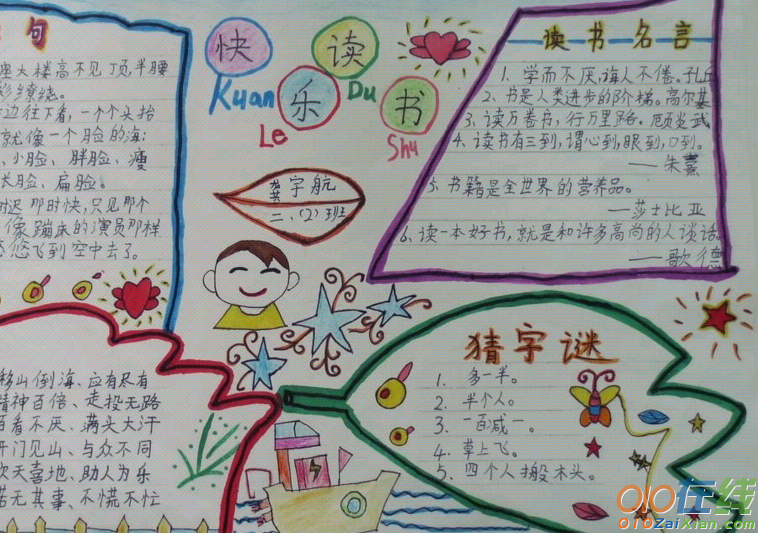 句
座大楼高不见丁页,半腰
彩缭绕。
边往下看,一个个头抬
就像一个脸的海:
、小脸、胖脸、瘦
长脸、扁脸。
时迟那时快,只见那个
像蹦床的演员那样
悠飞到空中去了。
快 乐 读 书
Kuan Le Du Shu
龚宇航
二、(2)班
读书名言
1. 学而不厌,诲人不倦。孔丘
2. 书是人类进步的阶梯。高尔基
3. 读万卷书,行万里路。顾炎武
4. 读书有三到,谓心到,眼到,口到。
——朱熹
5. 书籍是全世界的营养品。
——莎士比亚
6. 读一本好书,就是和许多高尚的人谈话。
——歌德
移山倒海、应有尽有
精神百倍、走投无路
百看不厌、满头大汗
开门见山、与众不同
欢天喜地、助人为乐
若无其事、不慌不忙
猜字谜
1. 多一半。
2. 半个人。
3. 一百减一。
4. 草上飞。
5. 四个人搬木头。
010在线
010ZaiXian.com